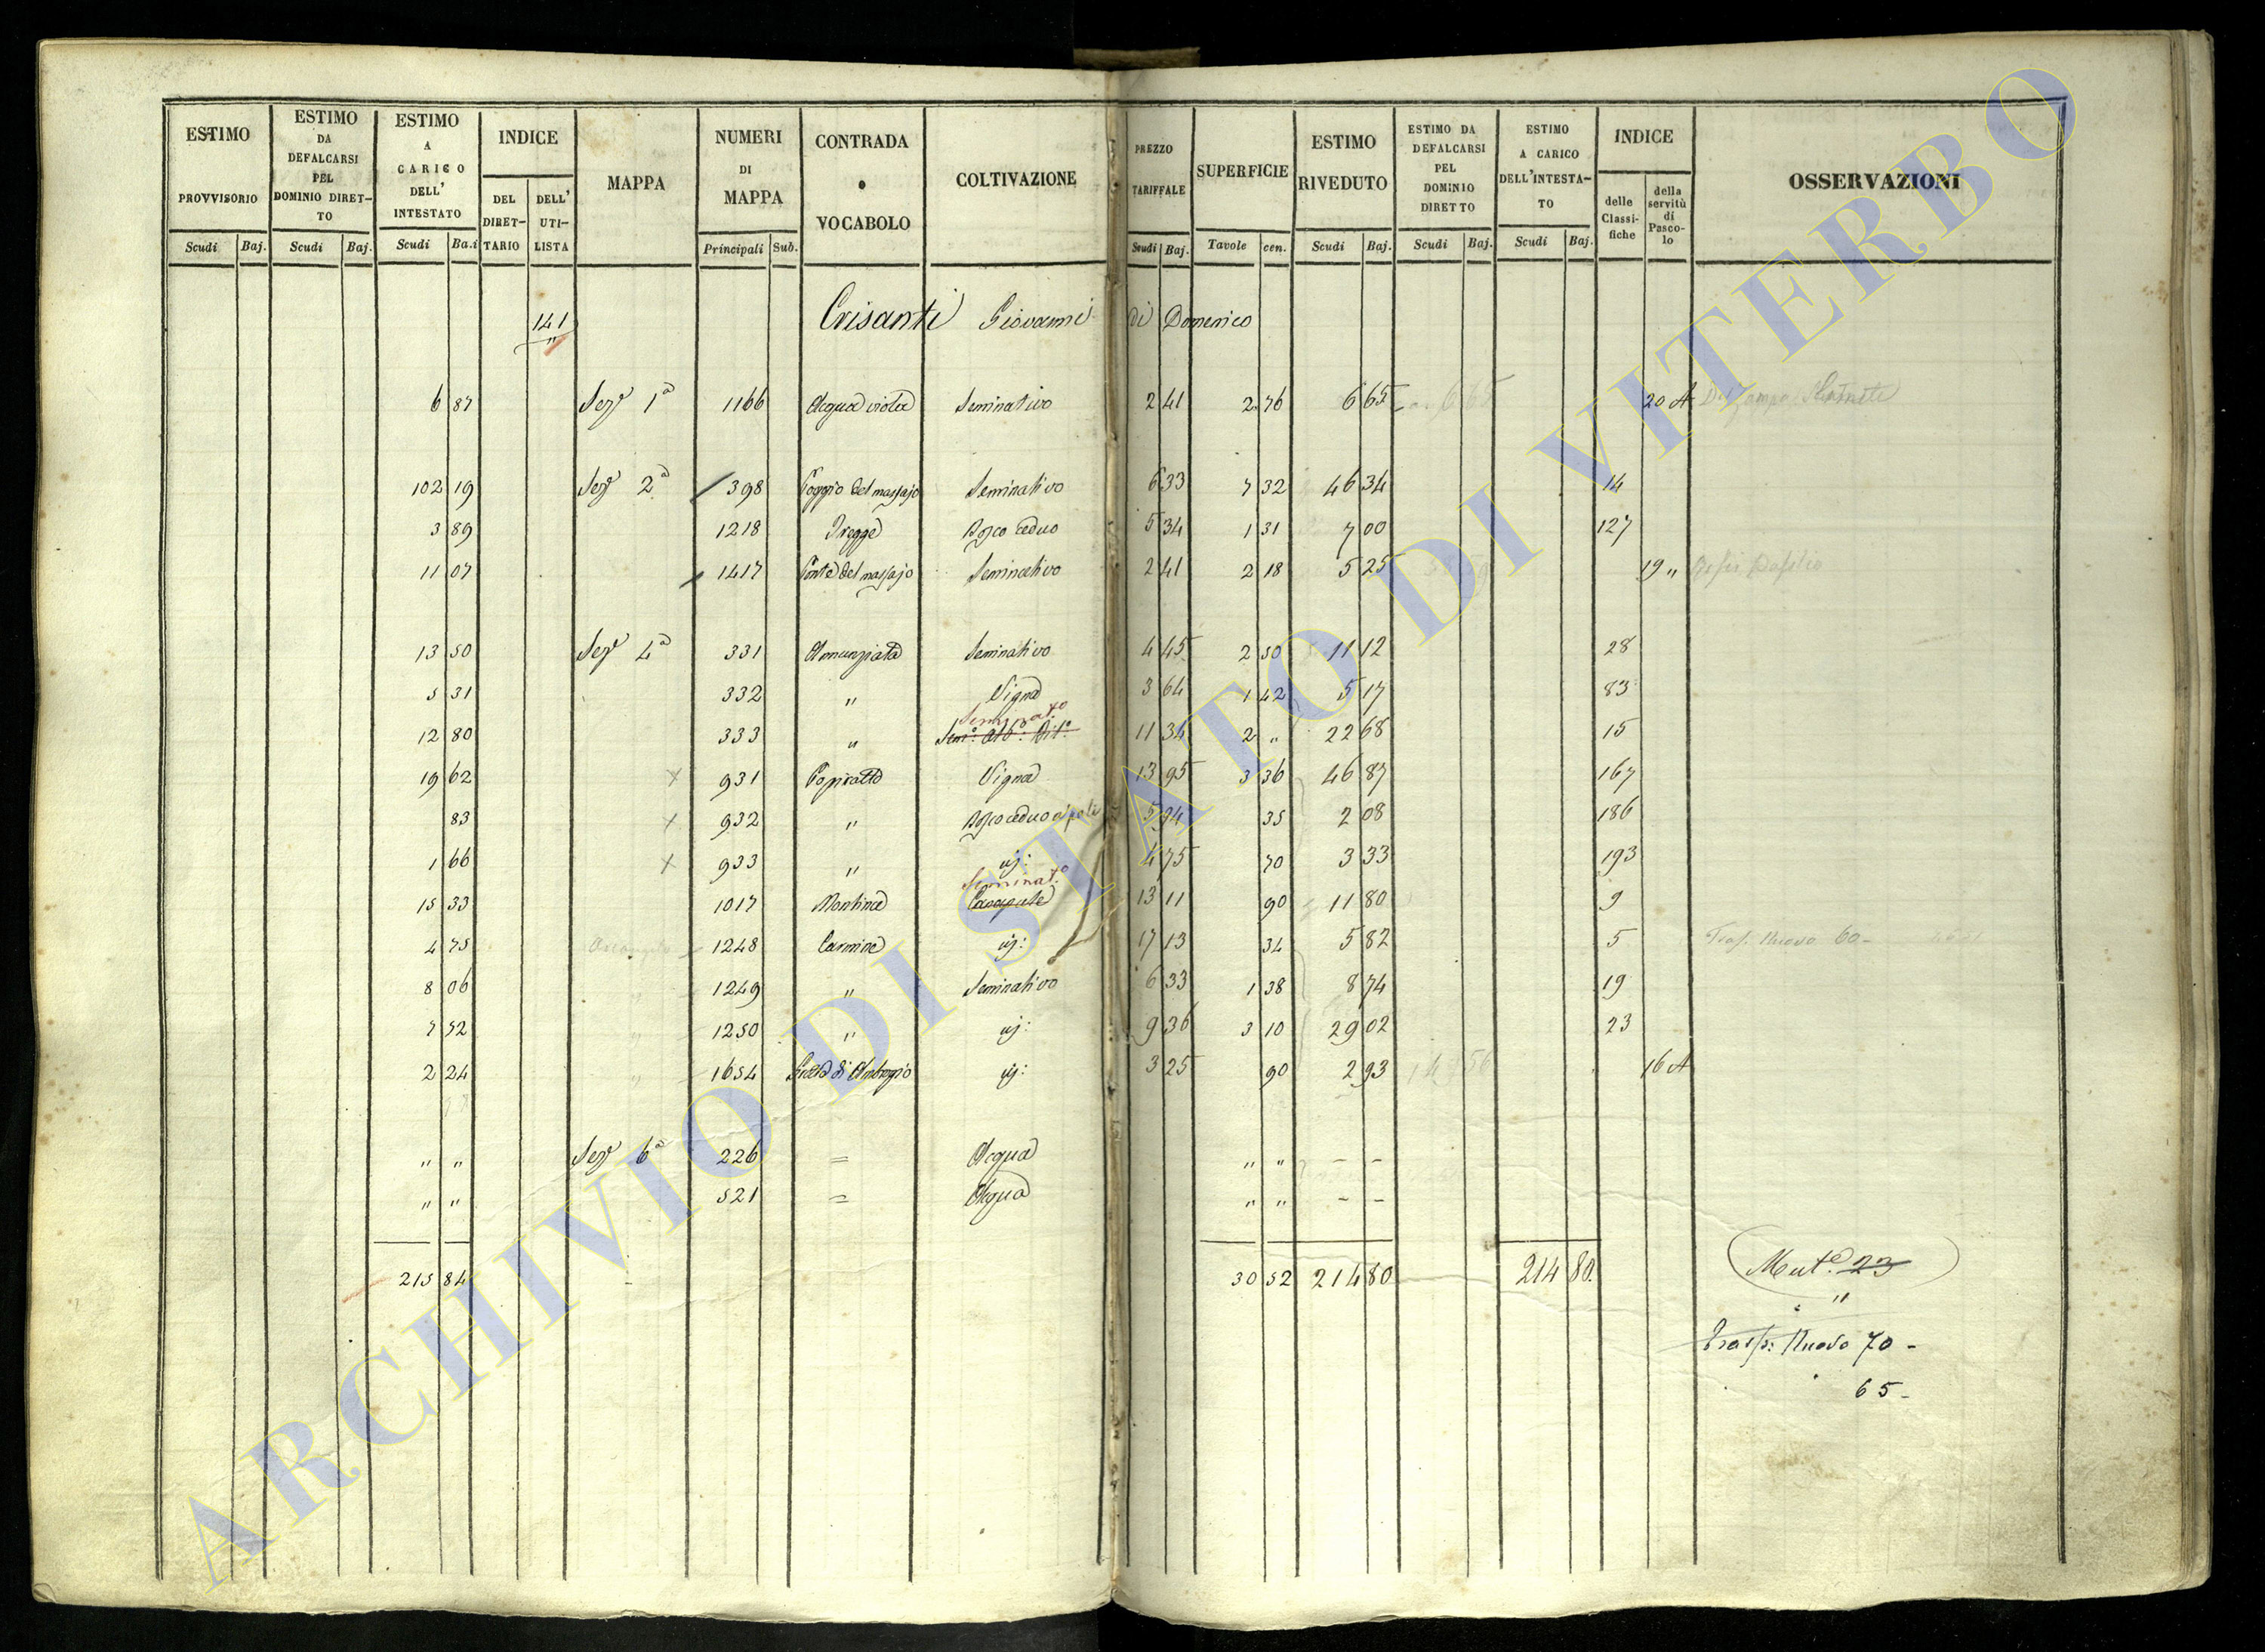 ESTIMO PROVVISORIO Scudi Baj.
ESTIMO DA DEFALCARSI PEL DOMINIO DIRETTO Scudi Baj.
ESTIMO A CARICO DELL' INTESTATO Scudi Ba.i
INDICE DEL DIRETTARIO DELL' UTILISTA
MAPPA
NUMERI DI MAPPA Principali Sub.
CONTRADA o VOCABOLO
COLTIVAZIONE
PREZZO TARIFFALE Scudi Baj.
SUPERFICIE Tavole cen.
ESTIMO RIVEDUTO Scudi Baj.
ESTIMO DA DEFALCARSI PEL DOMINIO DIRETTO Scudi Baj.
ESTIMO A CARICO DELL'INTESTATO Scudi Baj.
INDICE delle Classifiche della servitù di Pascolo
OSSERVAZIONI
141 Crisanti Giovanni di Domenico
"
6 87 Sez.e 1a 1166 Acqua viola Seminativo 2 41 2 76 6 65 20 A
102 19 Sez.e 2a 398 Poggio del massajo Seminativo 6 33 7 32 46 34 14
3 89 1218 Tregge Bosco ceduo 5 34 1 31 7 00 127
11 07 1417 Ponte del massajo Seminativo 2 41 2 18 5 25 19 "
13 50 Sez.e 4a 331 Annunziata Seminativo 4 45 2 50 11 12 28
5 31 332 " Vigna 3 64 1 42 5 17 83
Seminato
12 80 333 " Sem.o Alb.o Vit.o 11 34 2 " 22 68 15
19 62 × 931 Papiratto Vigna 13 95 3 36 46 87 167
83 × 932 " Bosco ceduo 5 94 35 2 08 186
1 66 × 933 " id: 4 75 70 3 33 193
Seminat.o
15 33 1017 Montina Canapule 13 11 90 11 80 9
4 75 1248 Carmine id: 17 13 34 5 82 5 Trasp. Nuovo 60-
8 06 1249 " Seminativo 6 33 1 38 8 74 19
7 52 1250 " id: 9 36 3 10 29 02 23
2 24 1654 di Ambrogio id: 3 25 90 2 93 16 A
" " Sez.e 6a 226 = Acqua " " - -
" " 521 = Acqua " " - -
215 84 30 52 214 80 214 80 Mut.e 23
"
Trasp: Nuovo 70 -
65 -
ARCHIVIO DI STATO DI VITERBO